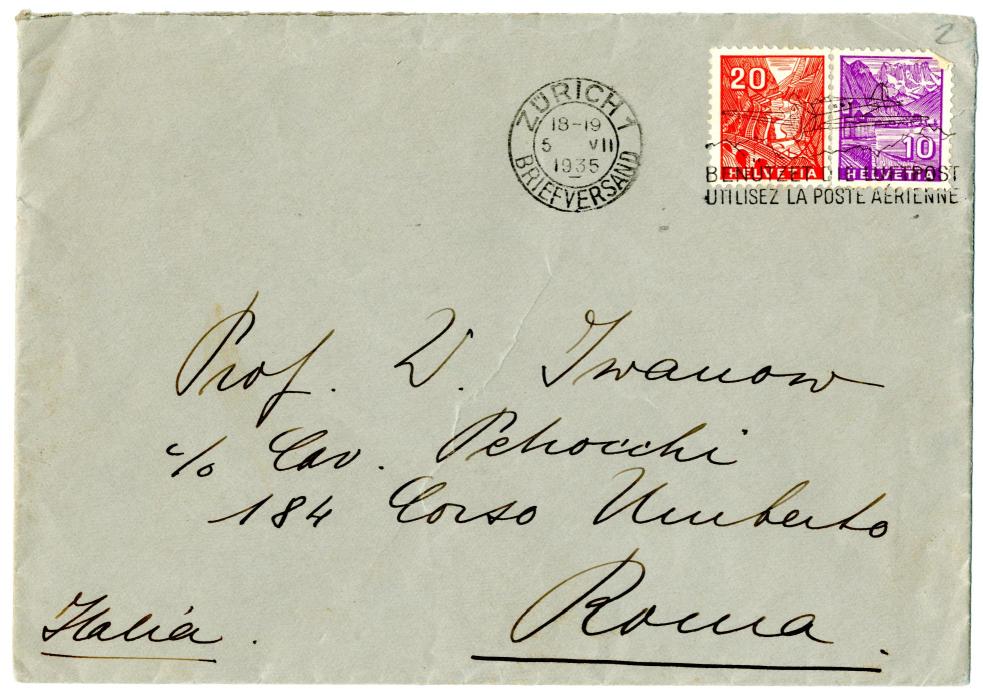 2
20
HELVETIA
10
HELVETIA
ZÜRICH 1
18-19
5 VII
1935
BRIEFVERSAND
BENÜTZET POST
UTILISEZ LA POSTE AÉRIENNE
Prof. W. Iwanow
c/o Cav. Petrocchi
184 Corso Umberto
Roma.
Italia.